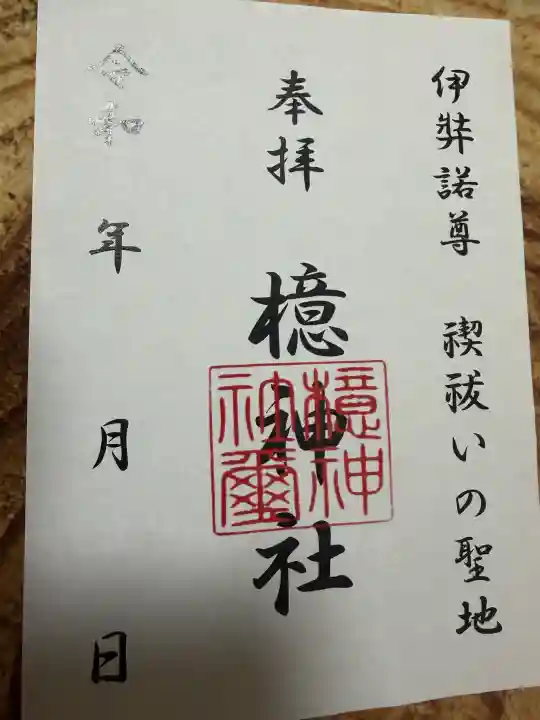 伊弉諾尊 禊祓いの聖地
奉拝 檍神社
檍神
社璽
令和 年 月 日